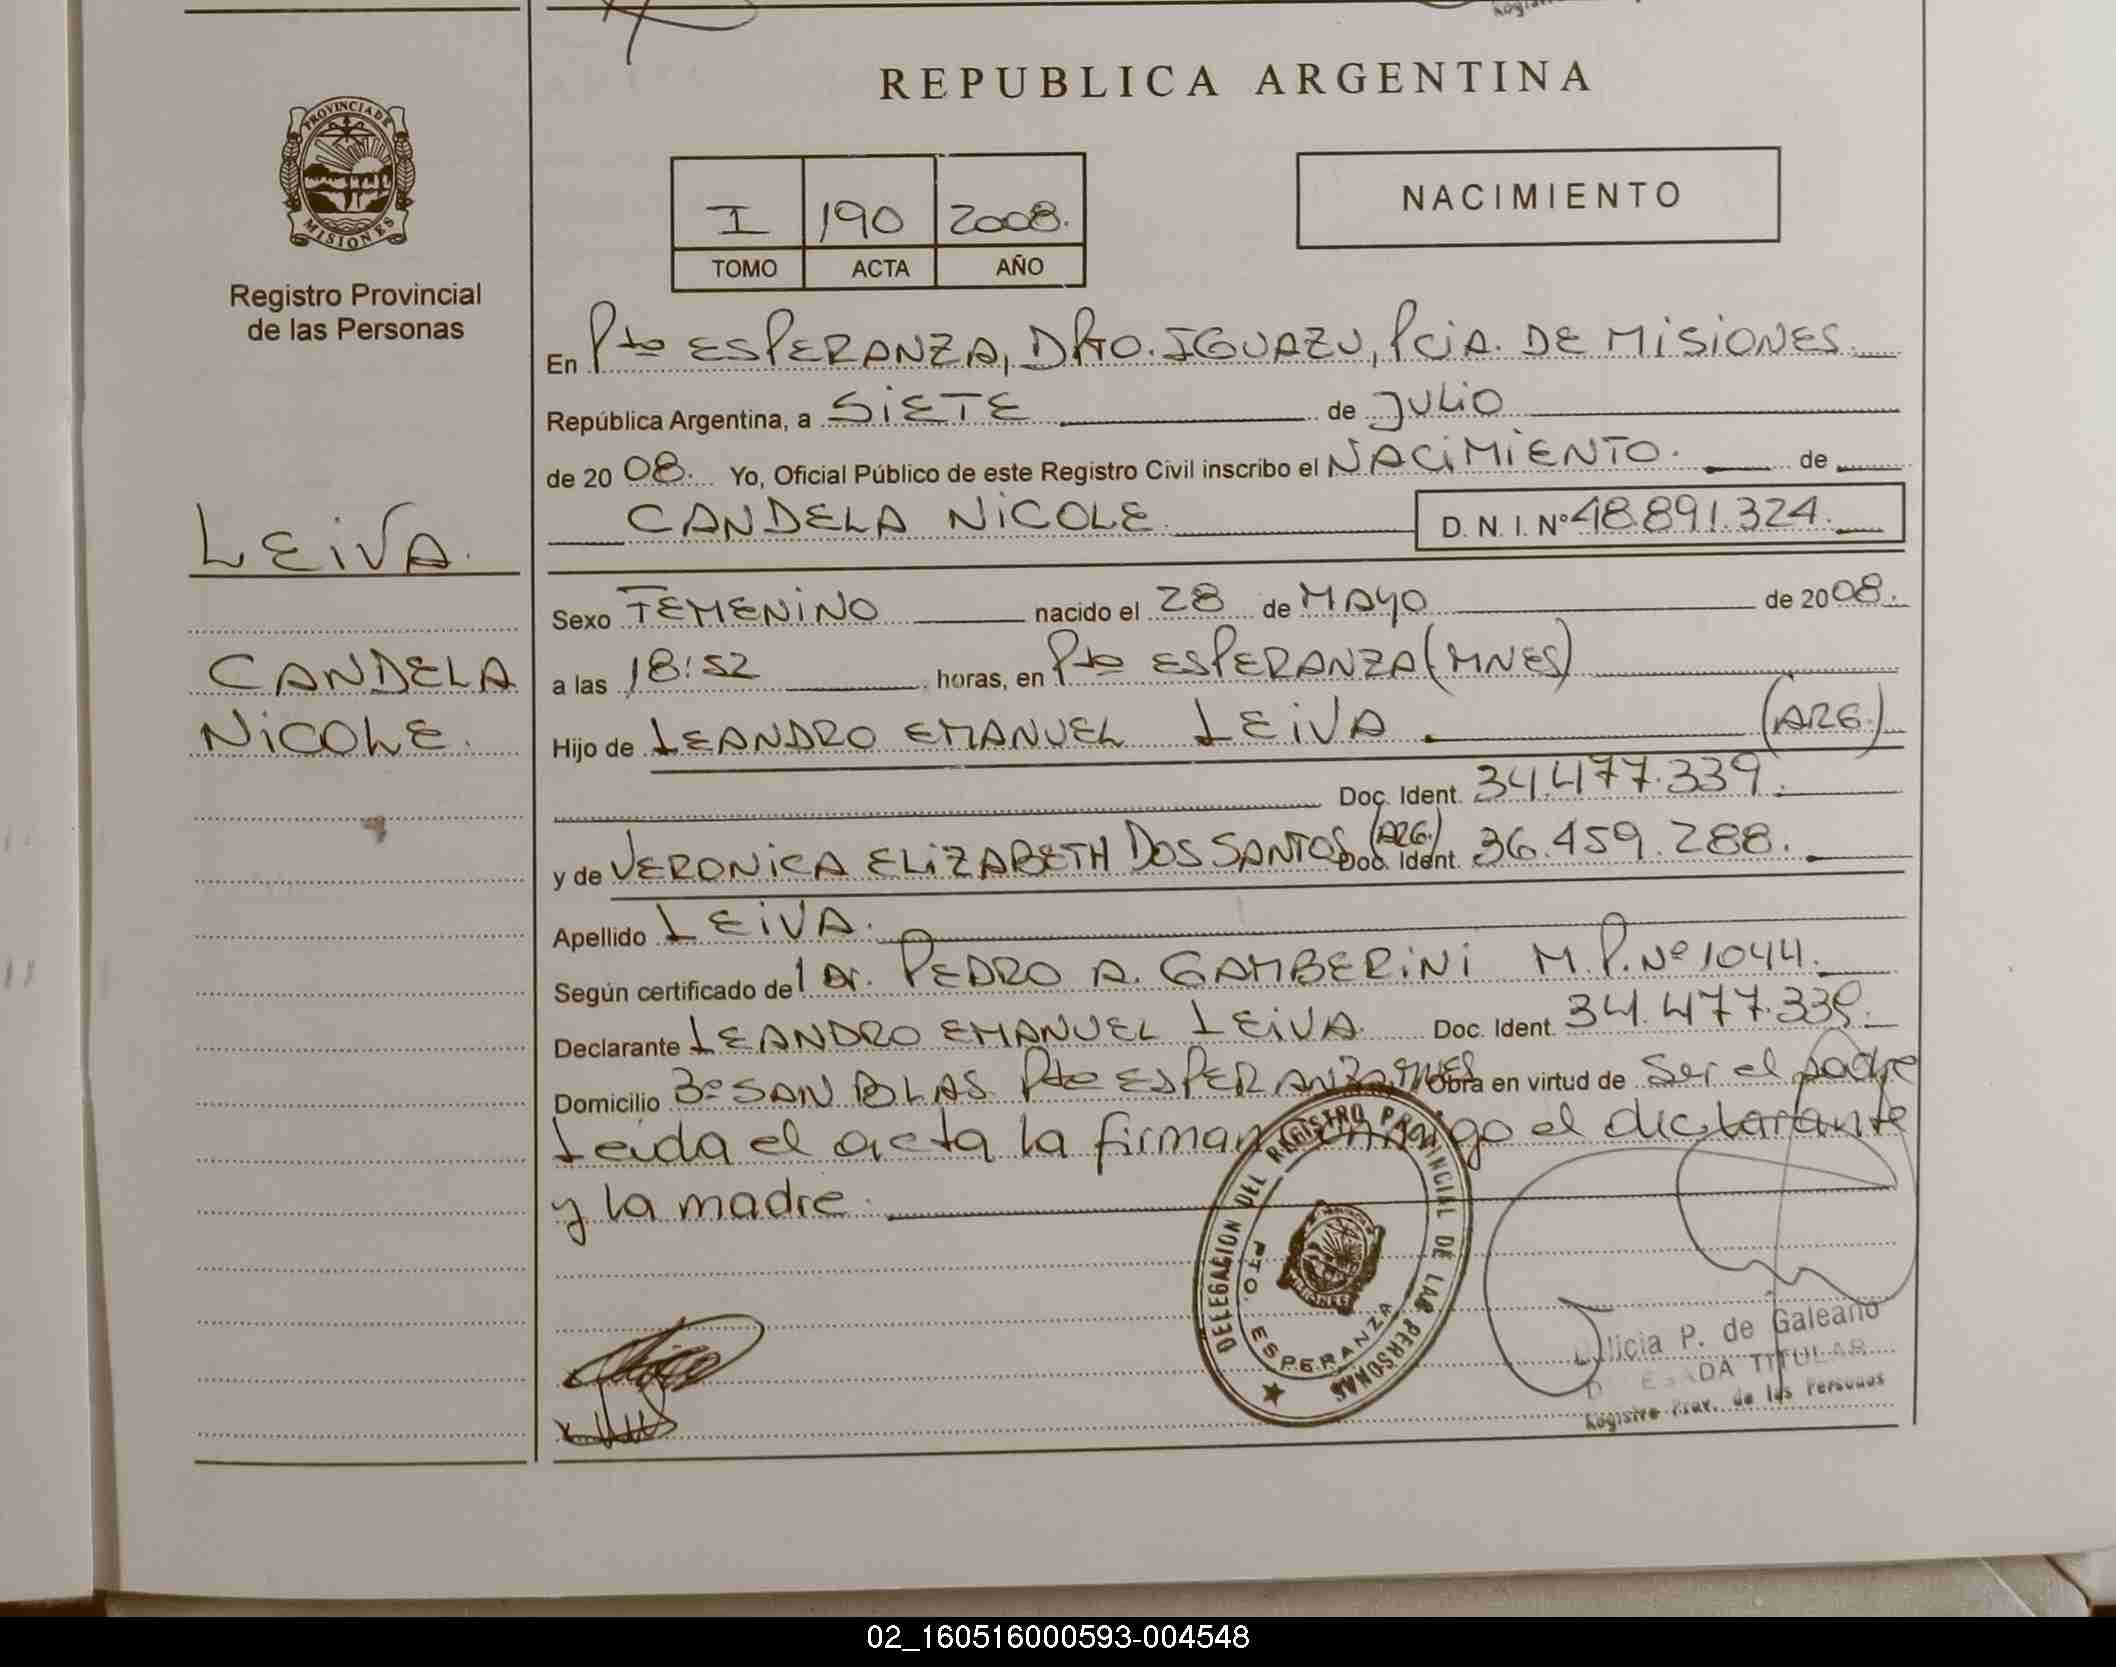 REPUBLICA ARGENTINA
PROVINCIA DE MISIONES
Registro Provincial
de las Personas
I 190 2008.
TOMO ACTA AÑO
NACIMIENTO
En Pto ESPERANZA, DPTO. IGUAZU, PCIA. DE MISIONES.
República Argentina, a SIETE de JULIO
de 2008. Yo, Oficial Público de este Registro Civil inscribo el NACIMIENTO. de
CANDELA NICOLE D. N. I. Nº 48.891.324.
LEIVA.
CANDELA
NICOLE.
Sexo FEMENINO nacido el 28 de MAYO de 2008.
a las 18:52 horas, en Pto ESPERANZA (MNES)
Hijo de LEANDRO EMANUEL LEIVA (ARG.)
Doc. Ident. 34.477.339.
y de VERONICA ELIZABETH DOS SANTOS (ARG.) Doc. Ident. 36.459.288.
Apellido LEIVA.
Según certificado del Dr. PEDRO A. GAMBERINI M.P. Nº 1044.
Declarante LEANDRO EMANUEL LEIVA. Doc. Ident. 34.477.339.
Domicilio Bº SAN BLAS Pto ESPERANZA, MNES Obra en virtud de Ser el padre
Leida el acta la firman conmigo el declarante
y la madre.
DELEGACION DEL REGISTRO PROVINCIAL DE LAS PERSONAS
PTO. ESPERANZA
MISIONES
licia P. de Galeano
TITULAR
Registro Prov. de las Personas
02_160516000593-004548